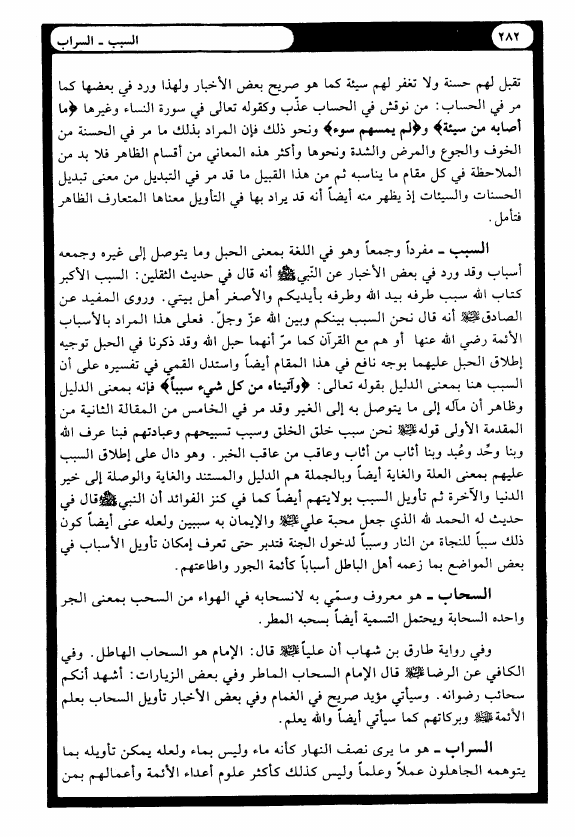 ٢٨٢
السبب ـ السراب
تقبل لهم حسنة ولا تغفر لهم سيئة كما هو صريح بعض الأخبار ولهذا ورد في بعضها كما
مر في الحساب: من نوقش في الحساب عذّب وكقوله تعالى في سورة النساء وغيرها ﴿ما
أصابه من سيئة﴾ و﴿لم يمسهم سوء﴾ ونحو ذلك فإن المراد بذلك ما مر في الحسنة من
الخوف والجوع والمرض والشدة ونحوها وأكثر هذه المعاني من أقسام الظاهر فلا بد من
الملاحظة في كل مقام ما يناسبه ثم من هذا القبيل ما قد مر في التبديل من معنى تبديل
الحسنات والسيئات إذ يظهر منه أيضاً أنه قد يراد بها في التأويل معناها المتعارف الظاهر
فتأمل.
السبب ـ مفرداً وجمعاً وهو في اللغة بمعنى الحبل وما يتوصل إلى غيره وجمعه
أسباب وقد ورد في بعض الأخبار عن النّبي ﷺ أنه قال في حديث الثقلين: السبب الأكبر
كتاب الله سبب طرفه بيد الله وطرفه بأيديكم والأصغر أهل بيتي. وروى المفيد عن
الصادق أنه قال نحن السبب بينكم وبين الله عزّ وجلّ. فعلى هذا المراد بالأسباب
الأئمة رضي الله عنها أو هم مع القرآن كما مرّ أنهما حبل الله وقد ذكرنا في الحبل توجيه
إطلاق الحبل عليهما بوجه نافع في هذا المقام أيضاً واستدل القمي في تفسيره على أن
السبب هنا بمعنى الدليل بقوله تعالى: ﴿وآتيناه من كل شيء سبباً﴾ فإنه بمعنى الدليل
وظاهر أن مآله إلى ما يتوصل به إلى الغير وقد مر في الخامس من المقالة الثانية من
المقدمة الأولى قوله نحن سبب خلق الخلق وسبب تسبيحهم وعبادتهم فبنا عرف الله
وبنا وحّد وعُبد وبنا أثاب من أثاب وعاقب من عاقب الخبر. وهو دال على إطلاق السبب
عليهم بمعنى العلة والغاية أيضاً وبالجملة هم الدليل والمستند والغاية والوصلة إلى خير
الدنيا والآخرة ثم تأويل السبب بولايتهم أيضاً كما في كنز الفوائد أن النبي ﷺ قال في
حديث له الحمد لله الذي جعل محبة علي والإيمان به سببين ولعله عنى أيضاً كون
ذلك سبباً للنجاة من النار وسبباً لدخول الجنة فتدبر حتى تعرف إمكان تأويل الأسباب في
بعض المواضع بما زعمه أهل الباطل أسباباً كأئمة الجور واطاعتهم.
السحاب ـ هو معروف وسمّي به لانسحابه في الهواء من السحب بمعنى الجر
واحده السحابة ويحتمل التسمية أيضاً بسحبه المطر.
وفي رواية طارق بن شهاب أن علياً قال: الإمام هو السحاب الهاطل. وفي
الكافي عن الرضا قال الإمام السحاب الماطر وفي بعض الزيارات: أشهد أنكم
سحائب رضوانه. وسيأتي مؤيد صريح في الغمام وفي بعض الأخبار تأويل السحاب بعلم
الأئمة وبركاتهم كما سيأتي أيضاً والله يعلم.
السراب ـ هو ما يرى نصف النهار كأنه ماء وليس بماء ولعله يمكن تأويله بما
يتوهمه الجاهلون عملاً وعلماً وليس كذلك كأكثر علوم أعداء الأئمة وأعمالهم بمن